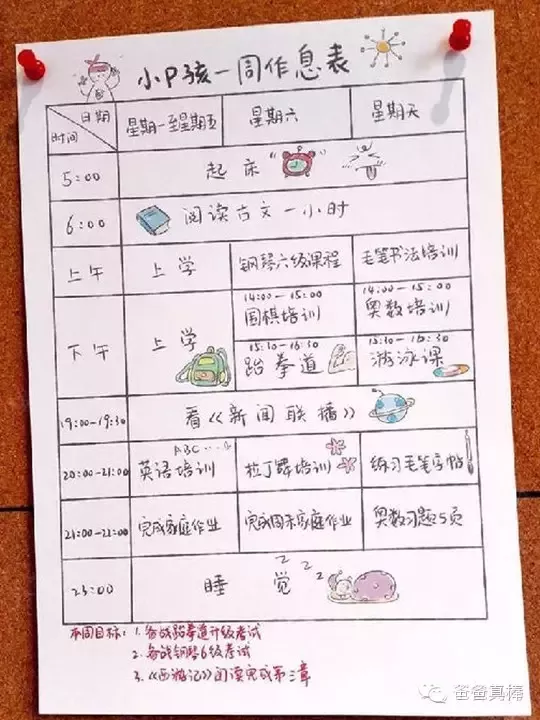 小P孩一周作息表
日期
时间
星期一至星期五 星期六 星期天
5:00 起床
6:00 阅读古文一小时
上午 上学 钢琴六级课程 毛笔书法培训
14:00-15:00 14:00-15:00
围棋培训 奥数培训
下午 上学
15:30-16:30 15:30-16:30
跆拳道 游泳课
19:00-19:30 看《新闻联播》
ABC...
20:00-21:00 英语培训 拉丁舞培训 练习毛笔字帖
21:00-22:00 完成家庭作业 完成周末家庭作业 奥数习题5页
23:00 睡觉 zzz
本周目标: 1.备战跆拳道升级考试
2.备战钢琴6级考试
3.《西游记》阅读完成第三章
爸爸真棒